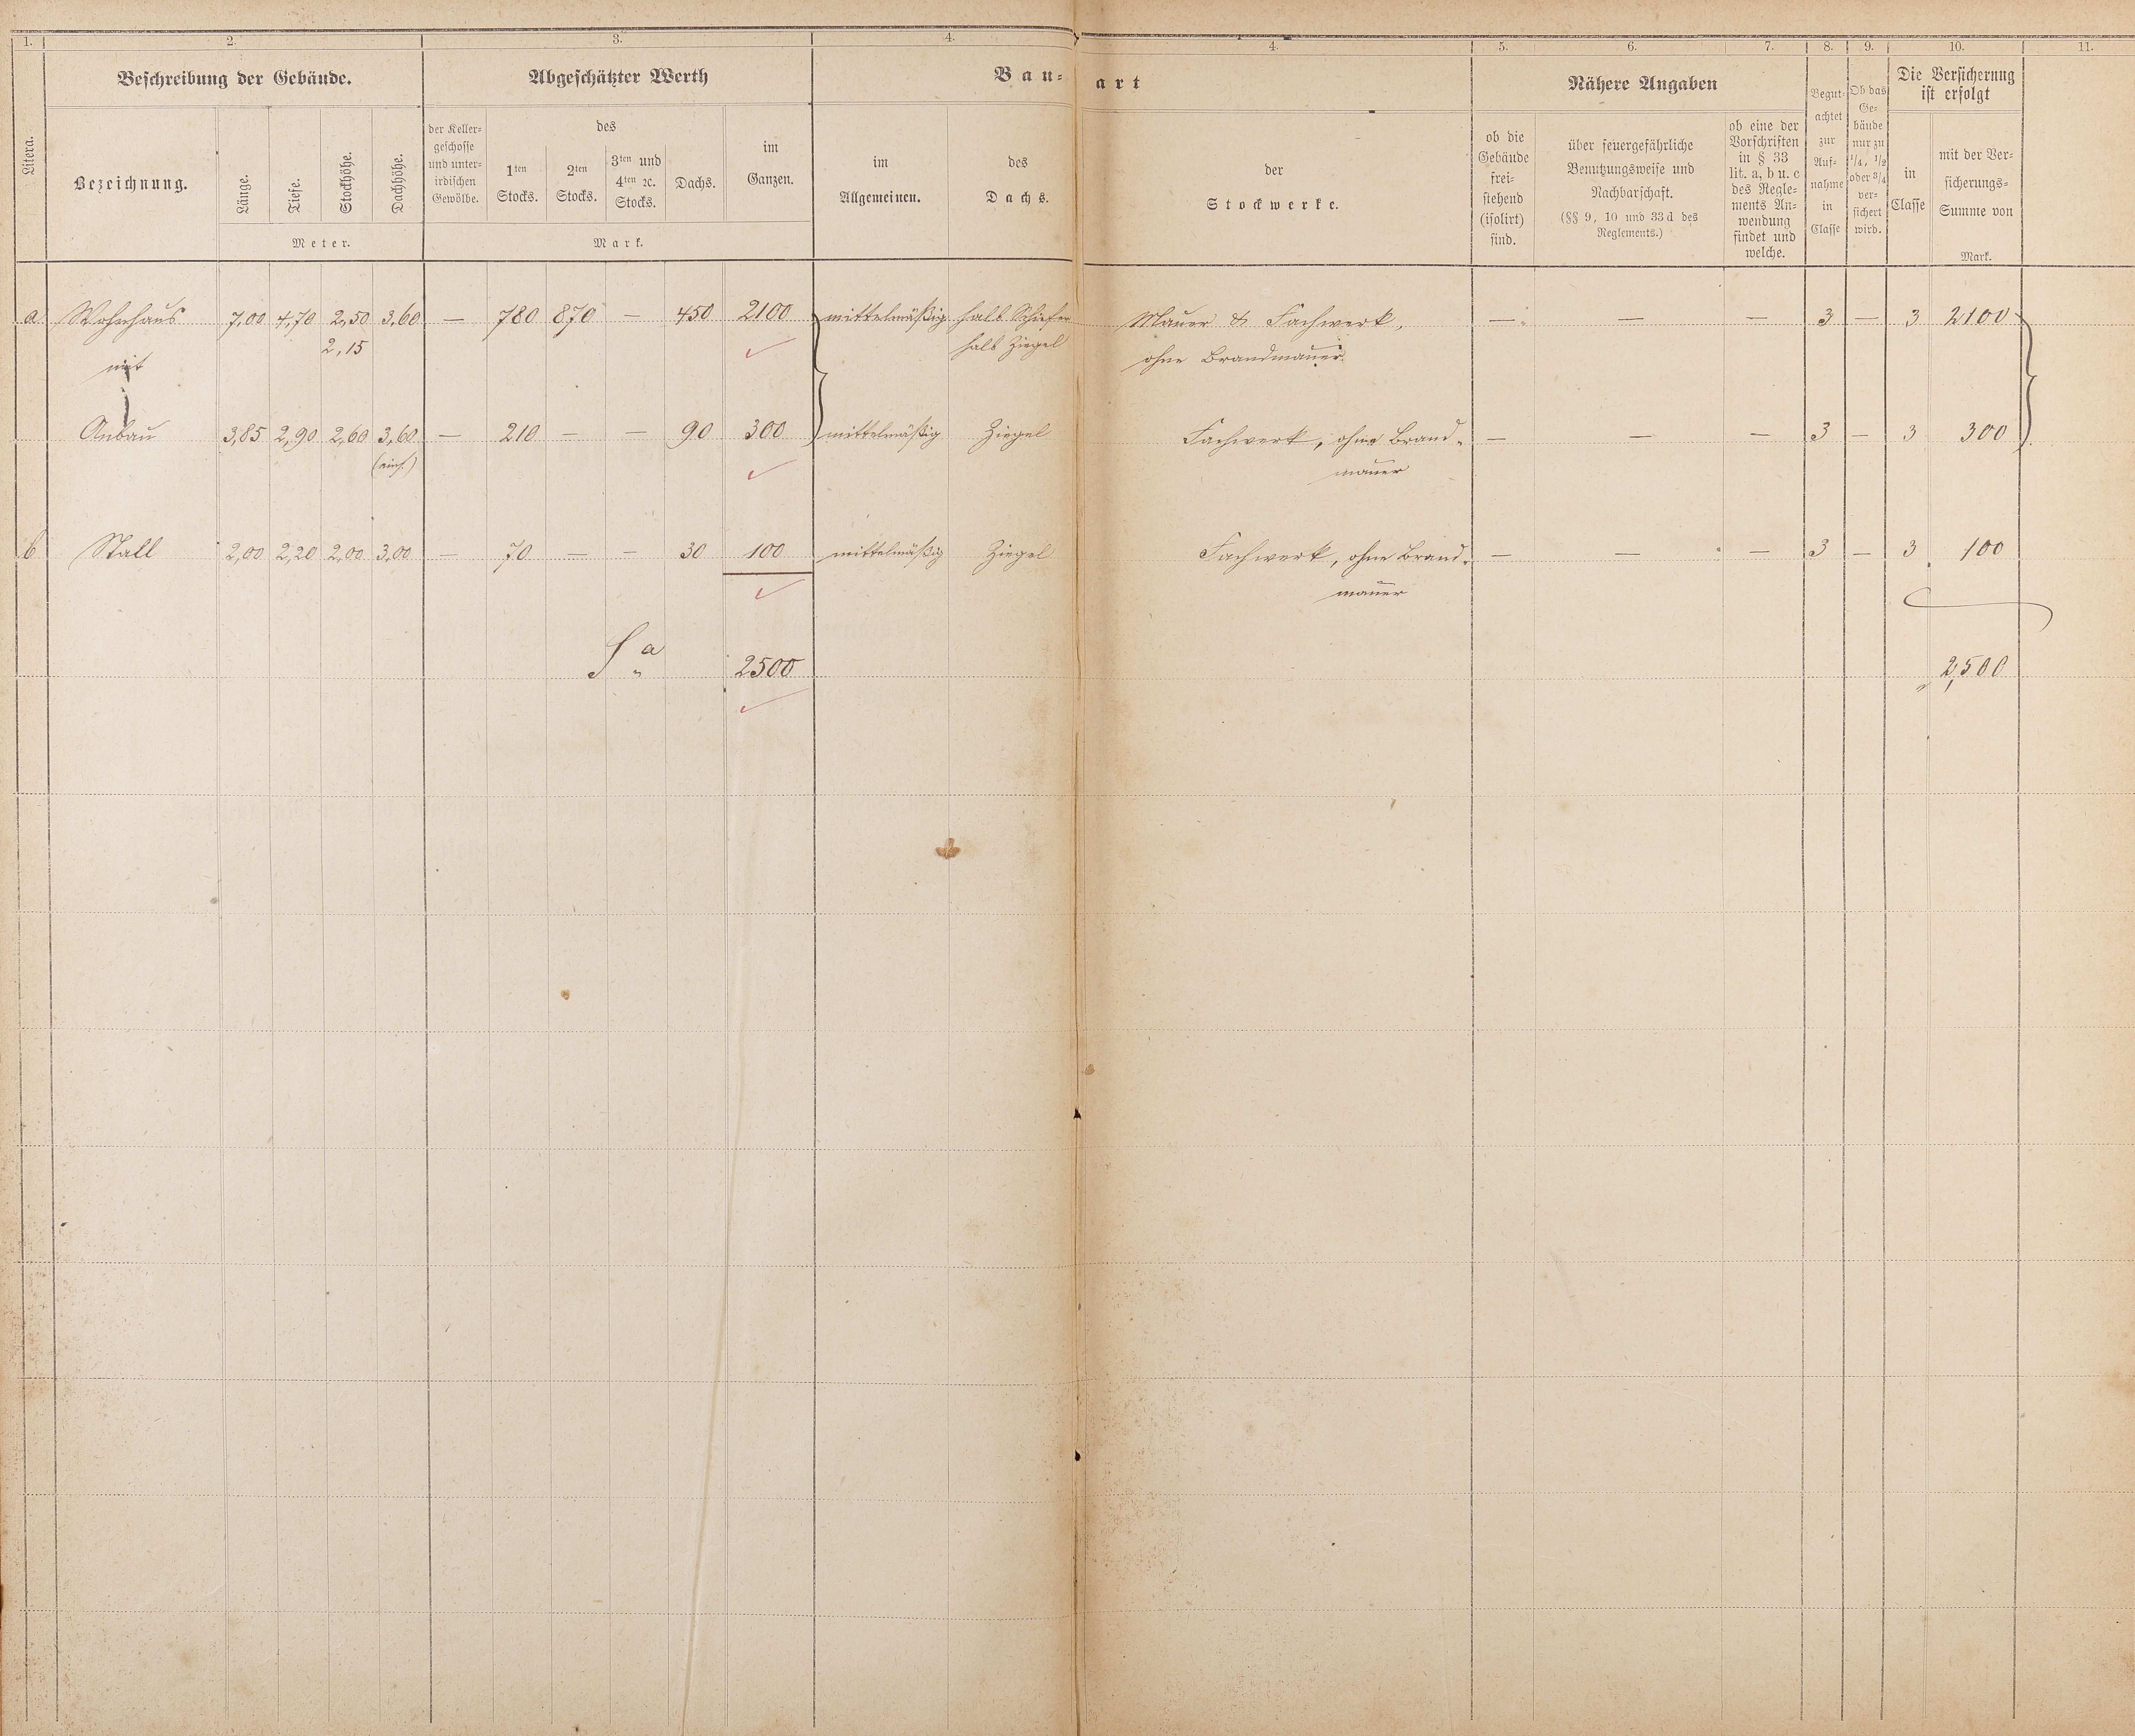 1. 2. 3. 4. 4. 5. 6. 7. 8. 9. 10. 11.
Litera.
Beschreibung der Gebäude.
Bezeichnung.
Länge.
Tiefe.
Stockhöhe.
Dachhöhe.
Meter.
Abgeschätzter Werth
der Keller-
geschosse
und unter-
irdischen
Gewölbe.
des
1ten
Stocks.
2ten
Stocks.
3ten und
4ten ꝛc.
Stocks.
Dachs.
im
Ganzen.
Mark.
Bau- art
im
Allgemeinen.
des
Dachs.
der
Stockwerke.
Nähere Angaben
ob die
Gebäude
frei-
stehend
(isolirt)
sind.
über feuergefährliche
Benutzungsweise und
Nachbarschaft.
(§§ 9, 10 und 33 d des
Reglements.)
ob eine der
Vorschriften
in § 33
lit. a, b u. c
des Regle-
ments An-
wendung
findet und
welche.
Begut-
achtet
zur
Auf-
nahme
in
Classe
Ob das
Ge-
bäude
nur zu
1/4, 1/2
oder 3/4
ver-
sichert
wird.
Die Versicherung
ist erfolgt
in
Classe
mit der Ver-
sicherungs-
Summe von
Mark.
a Wohnhaus 7,00 4,70 2,50 3,60 — 780 870 — 450 2100 mittelmäßig halb Schiefer Mauer & Fachwerk, — — — 3 — 3 2100
2,15 halb Ziegel ohne Brandmauer.
mit
Anbau 3,85 2,90 2,60 3,60 — 210 — — 90 300 mittelmäßig Ziegel Fachwerk, ohne Brand- — — — 3 — 3 300
(einf.) mauer
b Stall 2,00 2,20 2,00 3,00 — 70 — — 30 100 mittelmäßig Ziegel Fachwerk, ohne Brand- — — — 3 — 3 100
mauer
Sa 2500 2,500